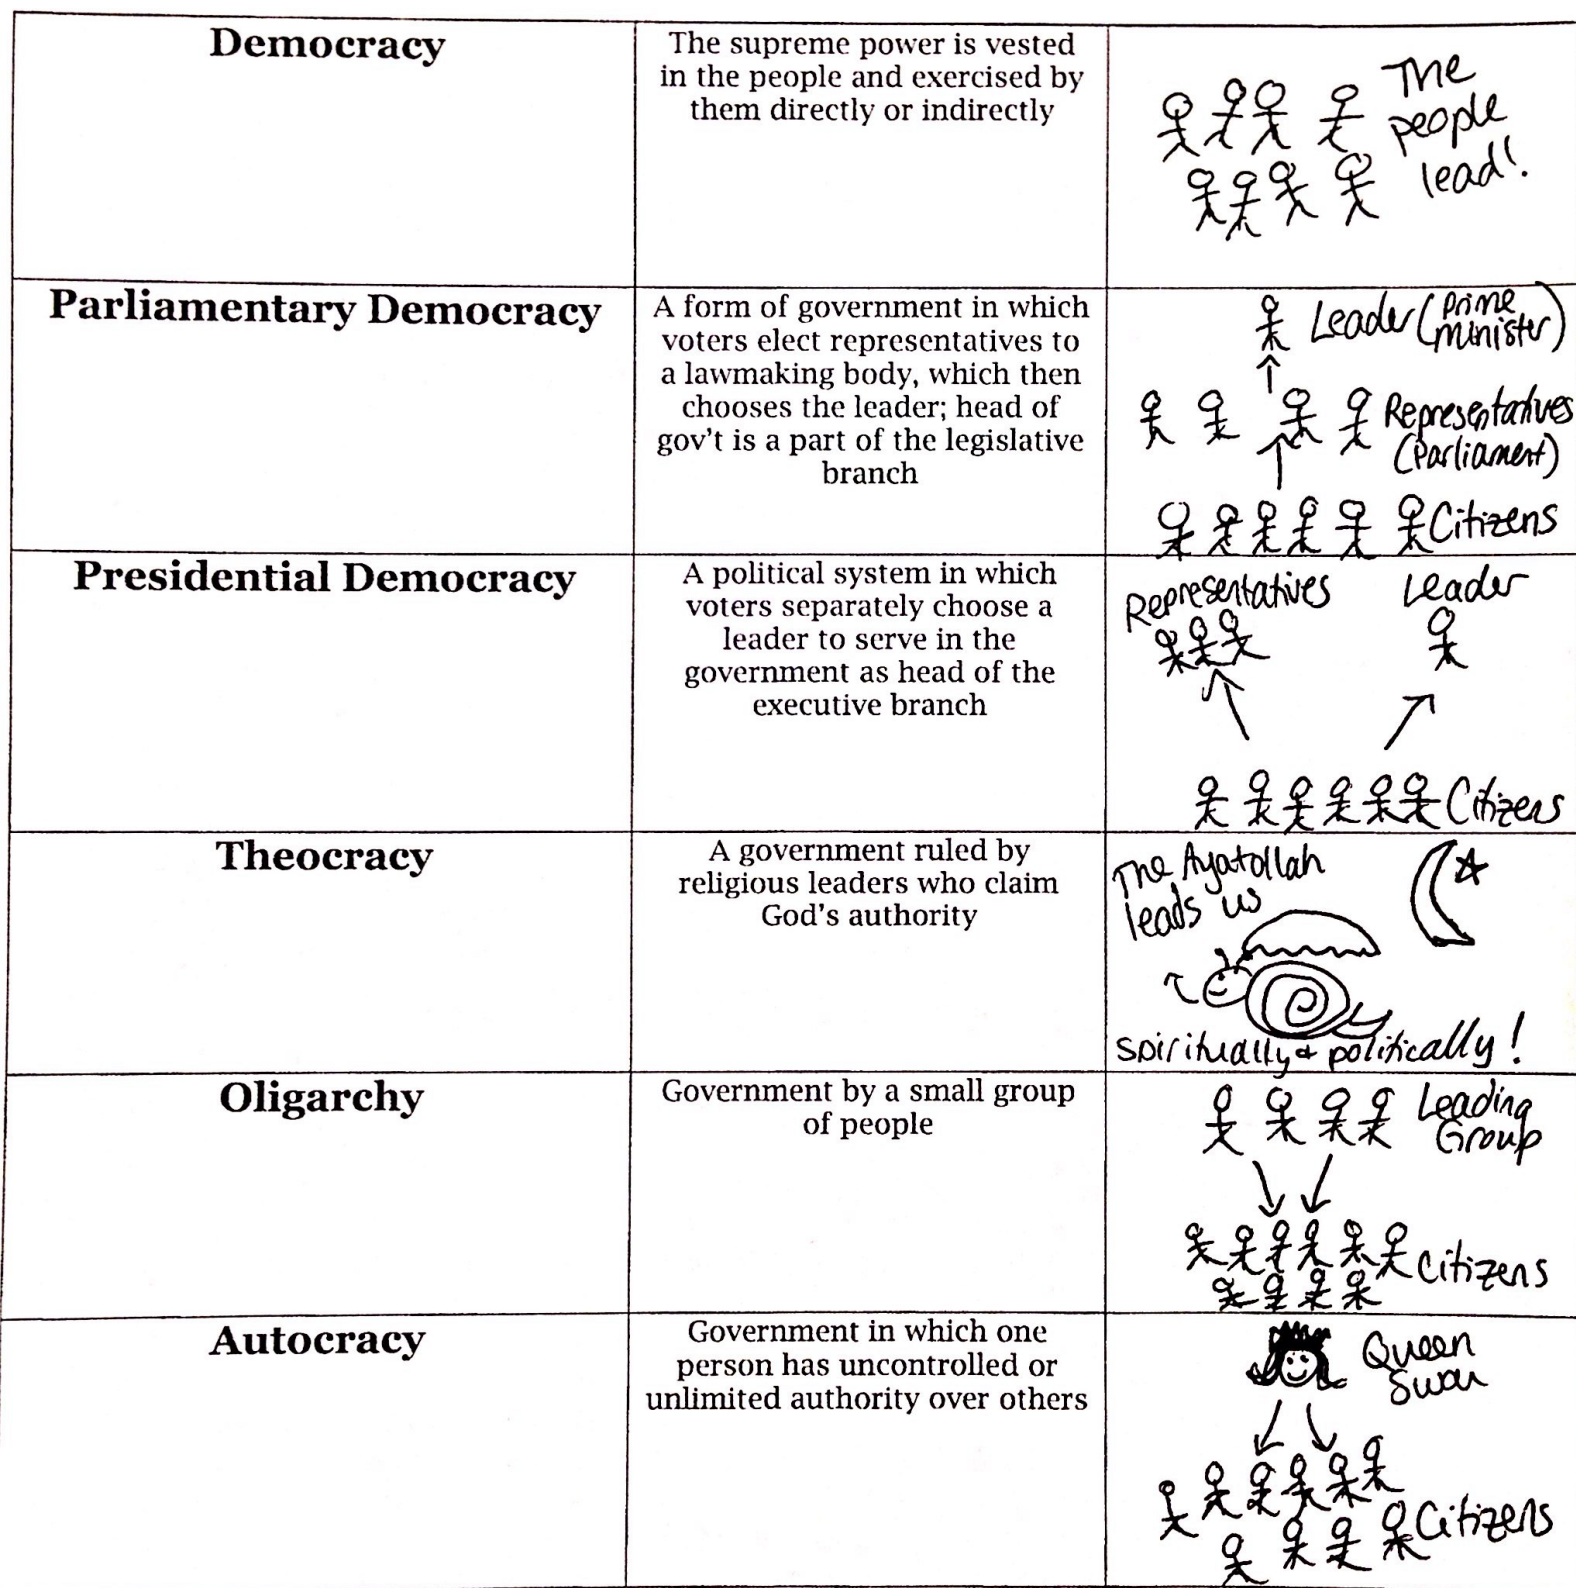 Democracy
The supreme power is vested
in the people and exercised by
them directly or indirectly
The
people
lead!
Parliamentary Democracy
A form of government in which
voters elect representatives to
a lawmaking body, which then
chooses the leader; head of
gov't is a part of the legislative
branch
Leader (prime
minister)
Representatives
(Parliament)
Citizens
Presidential Democracy
A political system in which
voters separately choose a
leader to serve in the
government as head of the
executive branch
Representatives
Leader
Citizens
Theocracy
A government ruled by
religious leaders who claim
God's authority
The Ayatollah
leads us
spiritually + politically!
Oligarchy
Government by a small group
of people
Leading
Group
Citizens
Autocracy
Government in which one
person has uncontrolled or
unlimited authority over others
Queen
Swan
Citizens